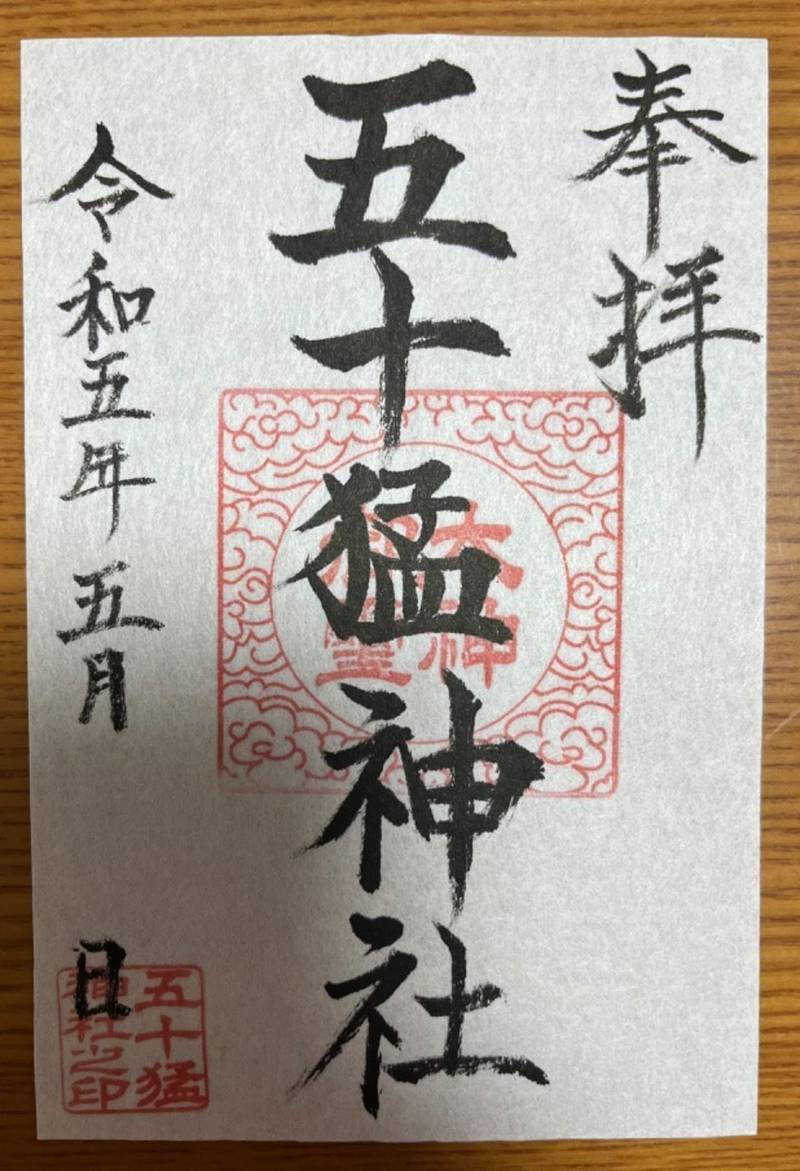 奉拝
五十猛神社
令和五年五月 日
大神
五十猛
神社之印